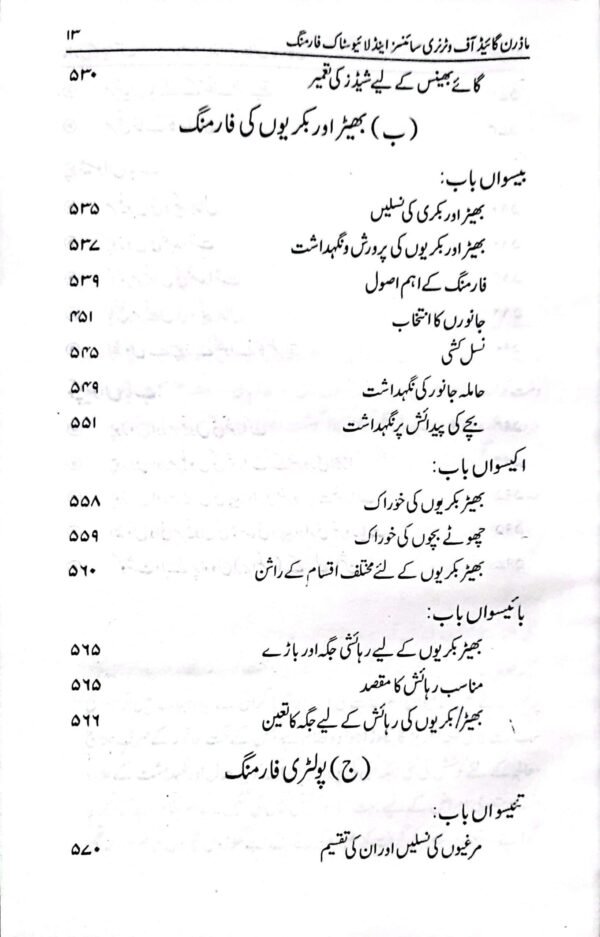 ماڈرن گائیڈ آف وٹرنری سائنسز اینڈ لائیوسٹاک فارمنگ ۱۳
گائے بھینس کے لیے شیڈز کی تعمیر ۵۳۰
(ب) بھیڑ اور بکریوں کی فارمنگ
بیسواں باب:
بھیڑ اور بکری کی نسلیں ۵۳۵
بھیڑ اور بکریوں کی پرورش و نگہداشت ۵۳۷
فارمنگ کے اہم اصول ۵۳۹
جانورں کا انتخاب ۴۵۱
نسل کشی ۵۴۵
حاملہ جانور کی نگہداشت ۵۴۹
بچے کی پیدائش پر نگہداشت ۵۵۱
اکیسواں باب:
بھیڑ بکریوں کی خوراک ۵۵۸
چھوٹے بچوں کی خوراک ۵۵۹
بھیڑ بکریوں کے لئے مختلف اقسام کے راشن ۵۶۰
بائیسواں باب:
بھیڑ بکریوں کے لیے رہائشی جگہ اور باڑے ۵۶۵
مناسب رہائش کا مقصد ۵۶۵
بھیڑ/بکریوں کی رہائش کے لیے جگہ کا تعین ۵۶۶
(ج) پولٹری فارمنگ
تئیسواں باب:
مرغیوں کی نسلیں اور ان کی تقسیم ۵۷۰